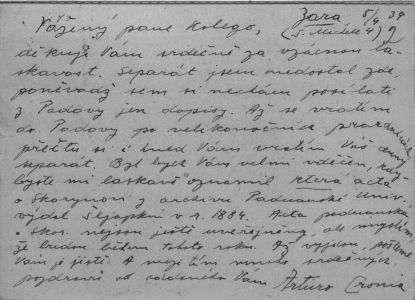 Zara 5/4 39
Vážený pane kolego, (S. Michele 4)
děkuji Vám srdečně za vzácnou la-
skavost. Separát jsem nedostal zde,
poněvadž sem si nechám posílati
z Padovy jen dopisy. Až se vrátím
do Padovy po velikonočních prazdninách,
přečtu si i hned Vám vrátím Váš
separát. Byl bych Vám velmi vděčen, kdy-
byste mi laskavě oznámil která acta
o Skorynovi z archivu Paduánské Univ.
vydal Šljapkin v r. 1884. Acta paduánská
o Skor. nejsou ještě uveřejněna, ale myslím
že budou během tohoto roku. Až vyjdou, pošleme
Vám je jistě. A mezi tím mnoho srdečných
pozdravů od oddaného Vám Arturo Cronia